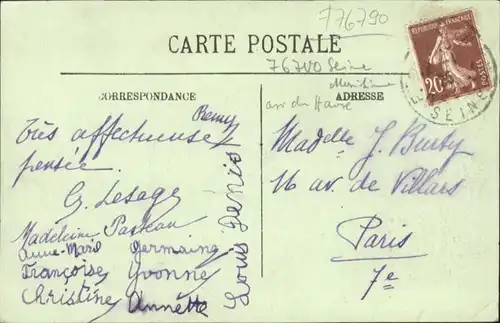 F76790
CARTE POSTALE
76740 Seine
Maritime
arr du Havre
CORRESPONDANCE
ADRESSE
RÉPUBLIQUE FRANÇAISE
20c
POSTES
SEINE
Remy
Très affectueuse
pensée.
G. Lesage
Madeleine
Anne-Marie Germaine
Françoise Yvonne
Christine Annette
Louis Denis
Madelle J. Burty
16 av. de Villars
Paris
7e